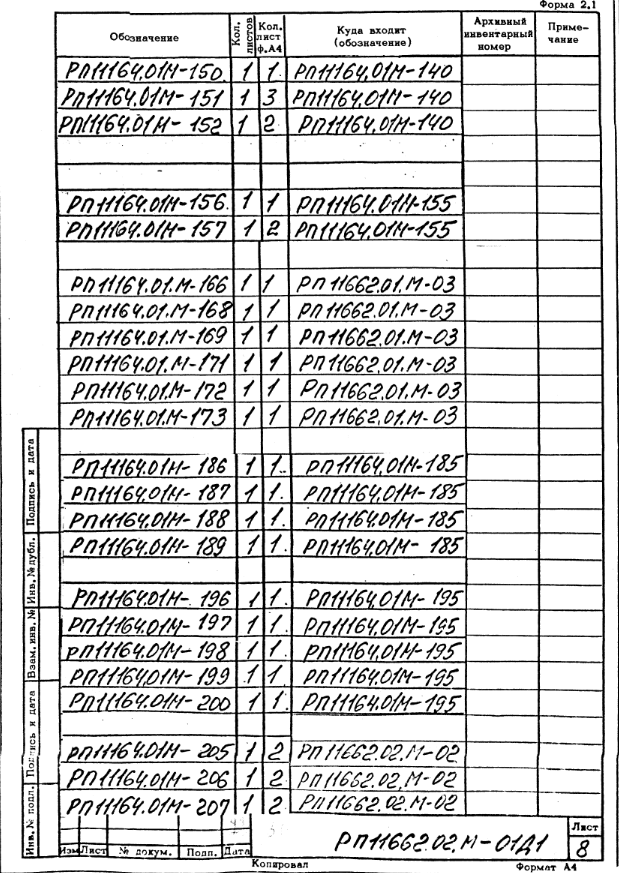 Форма 2.1
Обозначение Кол. листов Кол. лист ф.А4 Куда входит (обозначение) Архивный инвентарный номер Приме-чание
РП11164.01М-150. 1 1. РП11164.01М-140
РП11164.01М-151 1 3 РП11164.01М-140
РП11164.01М-152 1 2 РП11164.01М-140
РП11164.01М-156. 1 1 РП11164.01М-155
РП11164.01М-157 1 2 РП11164.01М-155
РП11164.01.М-166 1 1 РП11662.01.М-03
РП11164.01.М-168 1 1 РП11662.01.М-03
РП11164.01.М-169 1 1 РП11662.01.М-03
РП11164.01.М-171 1 1 РП11662.01.М-03
РП11164.01.М-172 1 1 РП11662.01.М-03
РП11164.01.М-173 1 1 РП11662.01.М-03
РП11164.01М-186 1 1. РП11164.01М-185
РП11164.01М-187 1 1. РП11164.01М-185
РП11164.01М-188 1 1. РП11164.01М-185
РП11164.01М-189 1 1. РП11164.01М-185
РП11164.01М-196 1 1. РП11164.01М-195
РП11164.01М-197 1 1. РП11164.01М-195
РП11164.01М-198 1 1. РП11164.01М-195
РП11164.01М-199 1 1. РП11164.01М-195
РП11164.01М-200 1 1. РП11164.01М-195
РП11164.01М-205 1 2 РП11662.02.М-02
РП11164.01М-206 1 2 РП11662.02.М-02
РП11164.01М-207 1 2. РП11662.02.М-02
Подпись и дата
Инв. № дубл.
Взам. инв. №
Подпись и дата
Инв. № подл.
Изм Лист № докум. Подп. Дата
РП11662.02.М-01Д1
Лист
8
Копировал
Формат А4